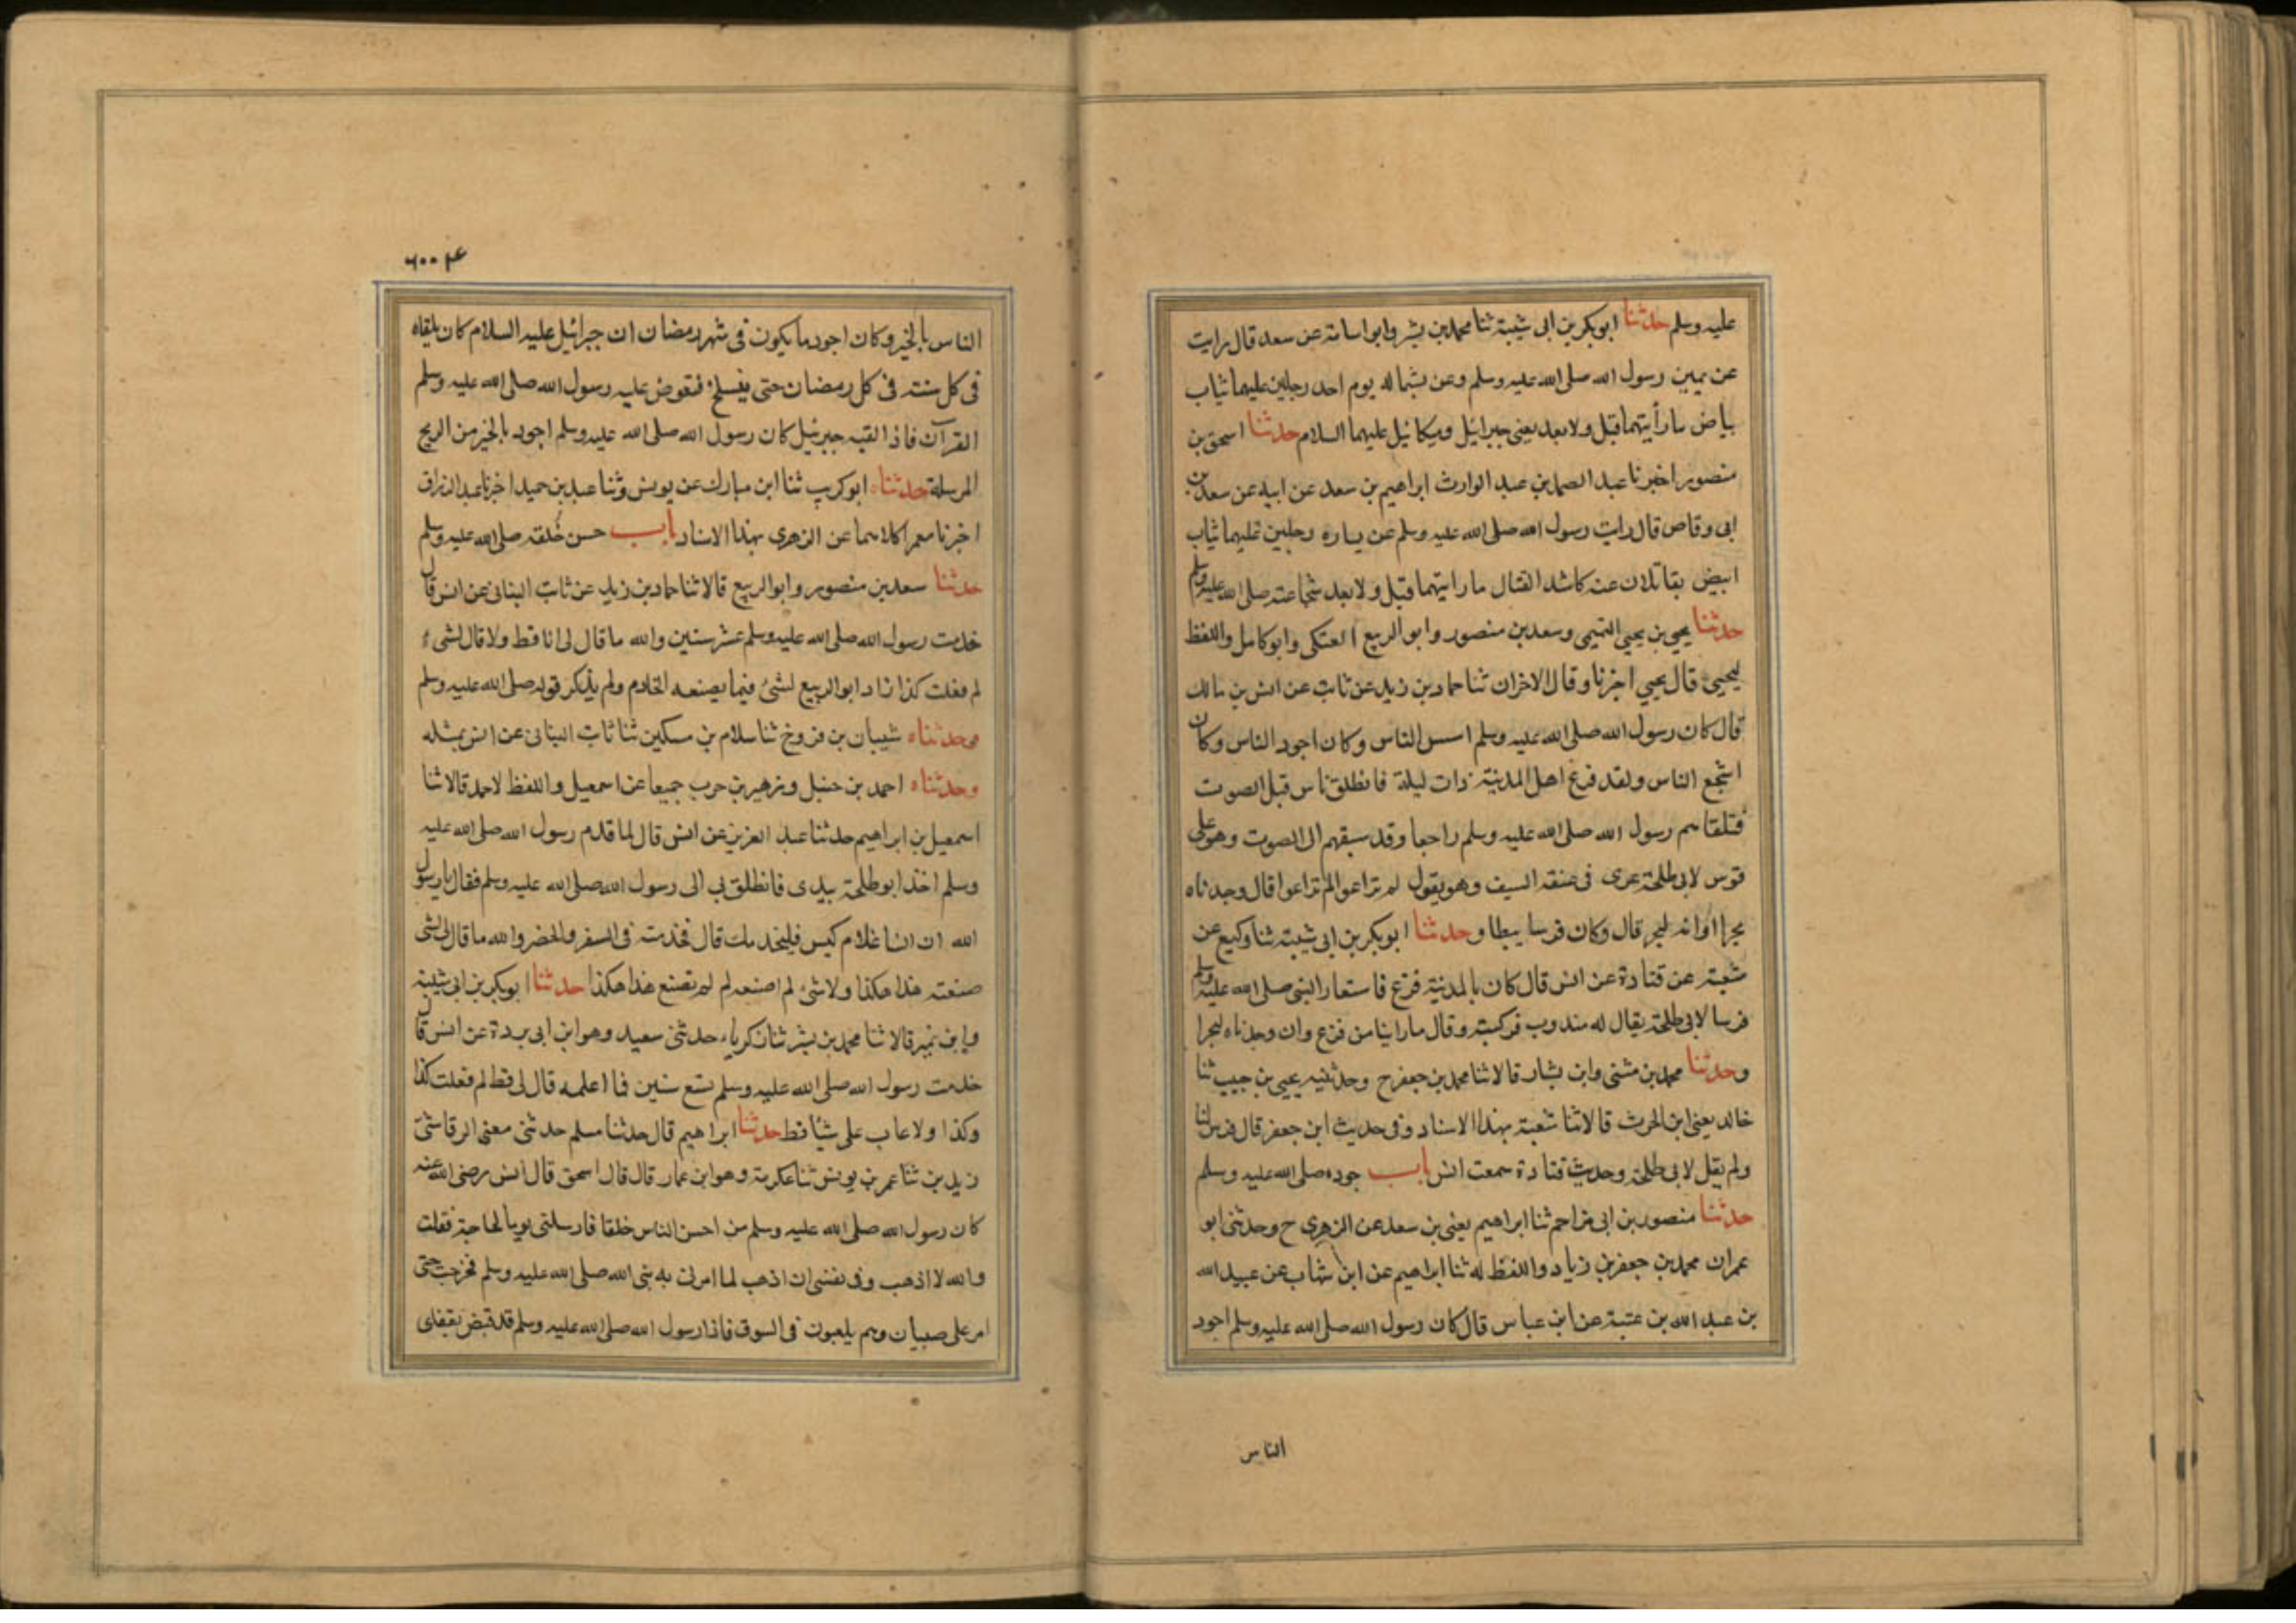 عليه وسلم حدثنا ابوبكر بن ابى شيبة ثنا محمد بن بشر وابو اسامة عن سعد قال رايت
عن يمين رسول الله صلى الله عليه وسلم وعن بشماله يوم احد رجلين عليهما ثياب
بياض ما رأيتهما قبل ولا بعد يعنى جبرائيل وميكائيل عليهما السلام حدثنا اسحق بن
منصور اخبرنا عبد الصمد بن عبد الوارث ابراهيم بن سعد عن ابيه عن سعد بن
ابى وقاص قال رايت رسول الله صلى الله عليه وسلم عن يساره رجلين عليهما ثياب
ابيض يقاتلان عنه كاشد القتال ما رايتهما قبل ولا بعد شجاعته صلى الله عليه وسلم
حدثنا يحيى بن يحيى التميمى وسعد بن منصور وابو الربيع العتكى وابو كامل واللفظ
ليحيى قال يحيى اخبرنا وقال الاخران ثنا حماد بن زيد عن ثابت عن انس بن مالك
قال كان رسول الله صلى الله عليه وسلم احسن الناس وكان اجود الناس وكان
اشجع الناس ولقد فزع اهل المدينة ذات ليلة فانطلق ناس قبل الصوت
فتلقاهم رسول الله صلى الله عليه وسلم راجعا وقد سبقهم الى الصوت وهو على
قوس لابى طلحة عرى فى عنقه السيف وهو يقول لم تراعوا لم تراعوا قال وجدناه
بحرا او انه لبحر قال وكان فرسا يبطا وحدثنا ابوبكر بن ابى شيبة ثنا وكيع عن
شعبة عن قتادة عن انس قال كان بالمدينة فزع فاستعار النبى صلى الله عليه وسلم
فرسا لابى طلحة يقال له مندوب فركبه وقال ما راينا من فزع وان وجدناه لبحرا
وحدثنا محمد بن مثنى وابن بشار قالا ثنا محمد بن جعفر ح وحدثنيه يحيى بن حبيب ثنا
خالد يعنى ابن الحرث قالا ثنا شعبة بهذا الاسناد وفى حديث ابن جعفر قال فرس لنا
ولم يقل لابى طلحة وحديث قتادة سمعت انس باب جوده صلى الله عليه وسلم
حدثنا منصور بن ابى مزاحم ثنا ابراهيم يعنى بن سعد عن الزهرى ح وحدثنى ابو
عمران محمد بن جعفر بن زياد واللفظ له ثنا ابراهيم عن ابن شهاب عن عبيد الله
بن عبد الله بن عتبة عن ابن عباس قال كان رسول الله صلى الله عليه وسلم اجود
الناس
الناس بالخير وكان اجود ما يكون فى شهر رمضان ان جبرائيل عليه السلام كان يلقاه
فى كل سنته فى كل رمضان حتى ينسلخ فيعرض عليه رسول الله صلى الله عليه وسلم
القرآن فاذا لقيه جبرئيل كان رسول الله صلى الله عليه وسلم اجود بالخير من الريح
المرسلة حدثناه ابو كريب ثنا ابن مبارك عن يونس وثنا عبد بن حميد اخبرنا عبد الرزاق
اخبرنا معمر كلاهما عن الزهرى بهذا الاسناد باب حسن خُلقه صلى الله عليه وسلم
حدثنا سعد بن منصور وابو الربيع قالا ثنا حماد بن زيد عن ثابت البنانى عن انس قال
خدمت رسول الله صلى الله عليه وسلم عشر سنين والله ما قال لى انا قط ولا قال لشىء
لم فعلت كذا زاد ابو الربيع لشئ فيما يصنعه الخادم ولم يذكر قوله صلى الله عليه وسلم
وحدثناه شيبان بن فروخ ثنا سلام بن مسكين ثنا ثابت البنانى عن انس بمثله
وحدثناه احمد بن حنبل وزهير بن حرب جميعا عن اسمعيل واللفظ لاحمد قالا ثنا
اسمعيل بن ابراهيم حدثنا عبد العزيز عن انس قال لما قدم رسول الله صلى الله عليه
وسلم اخذ ابو طلحة بيدى فانطلق بى الى رسول الله صلى الله عليه وسلم فقال يا رسول
الله ان انسا غلام كيس فليخدمك قال فخدمته فى السفر والحضر والله ما قال لى لشى
صنعته هذا هكذا ولا شئ لم اصنعه لم لم تصنع هذا هكذا حدثنا ابوبكر بن ابى شيبة
وابن نمير قالا ثنا محمد بن بشر ثنا زكرياء حدثنى سعيد وهو ابن ابى بردة عن انس قال
خدمت رسول الله صلى الله عليه وسلم تسع سنين فما اعلمه قال لى قط لم فعلت كذا
وكذا ولا عاب على شيأ قط حدثنا ابراهيم قال حدثنا مسلم حدثنى معنى الرقاشى
زيد بن ثنا عمر بن يونس ثنا عكرمة وهو ابن عمار قال قال اسحق قال انس رضى الله عنه
كان رسول الله صلى الله عليه وسلم من احسن الناس خلقا فارسلنى يوما لحاجة فقلت
والله لا اذهب وفى نفسى ان اذهب لما امرنى به نبى الله صلى الله عليه وسلم فخرجت حتى
امر على صبيان وهم يلعبون فى السوق فاذا رسول الله صلى الله عليه وسلم قد قبض بقفاى